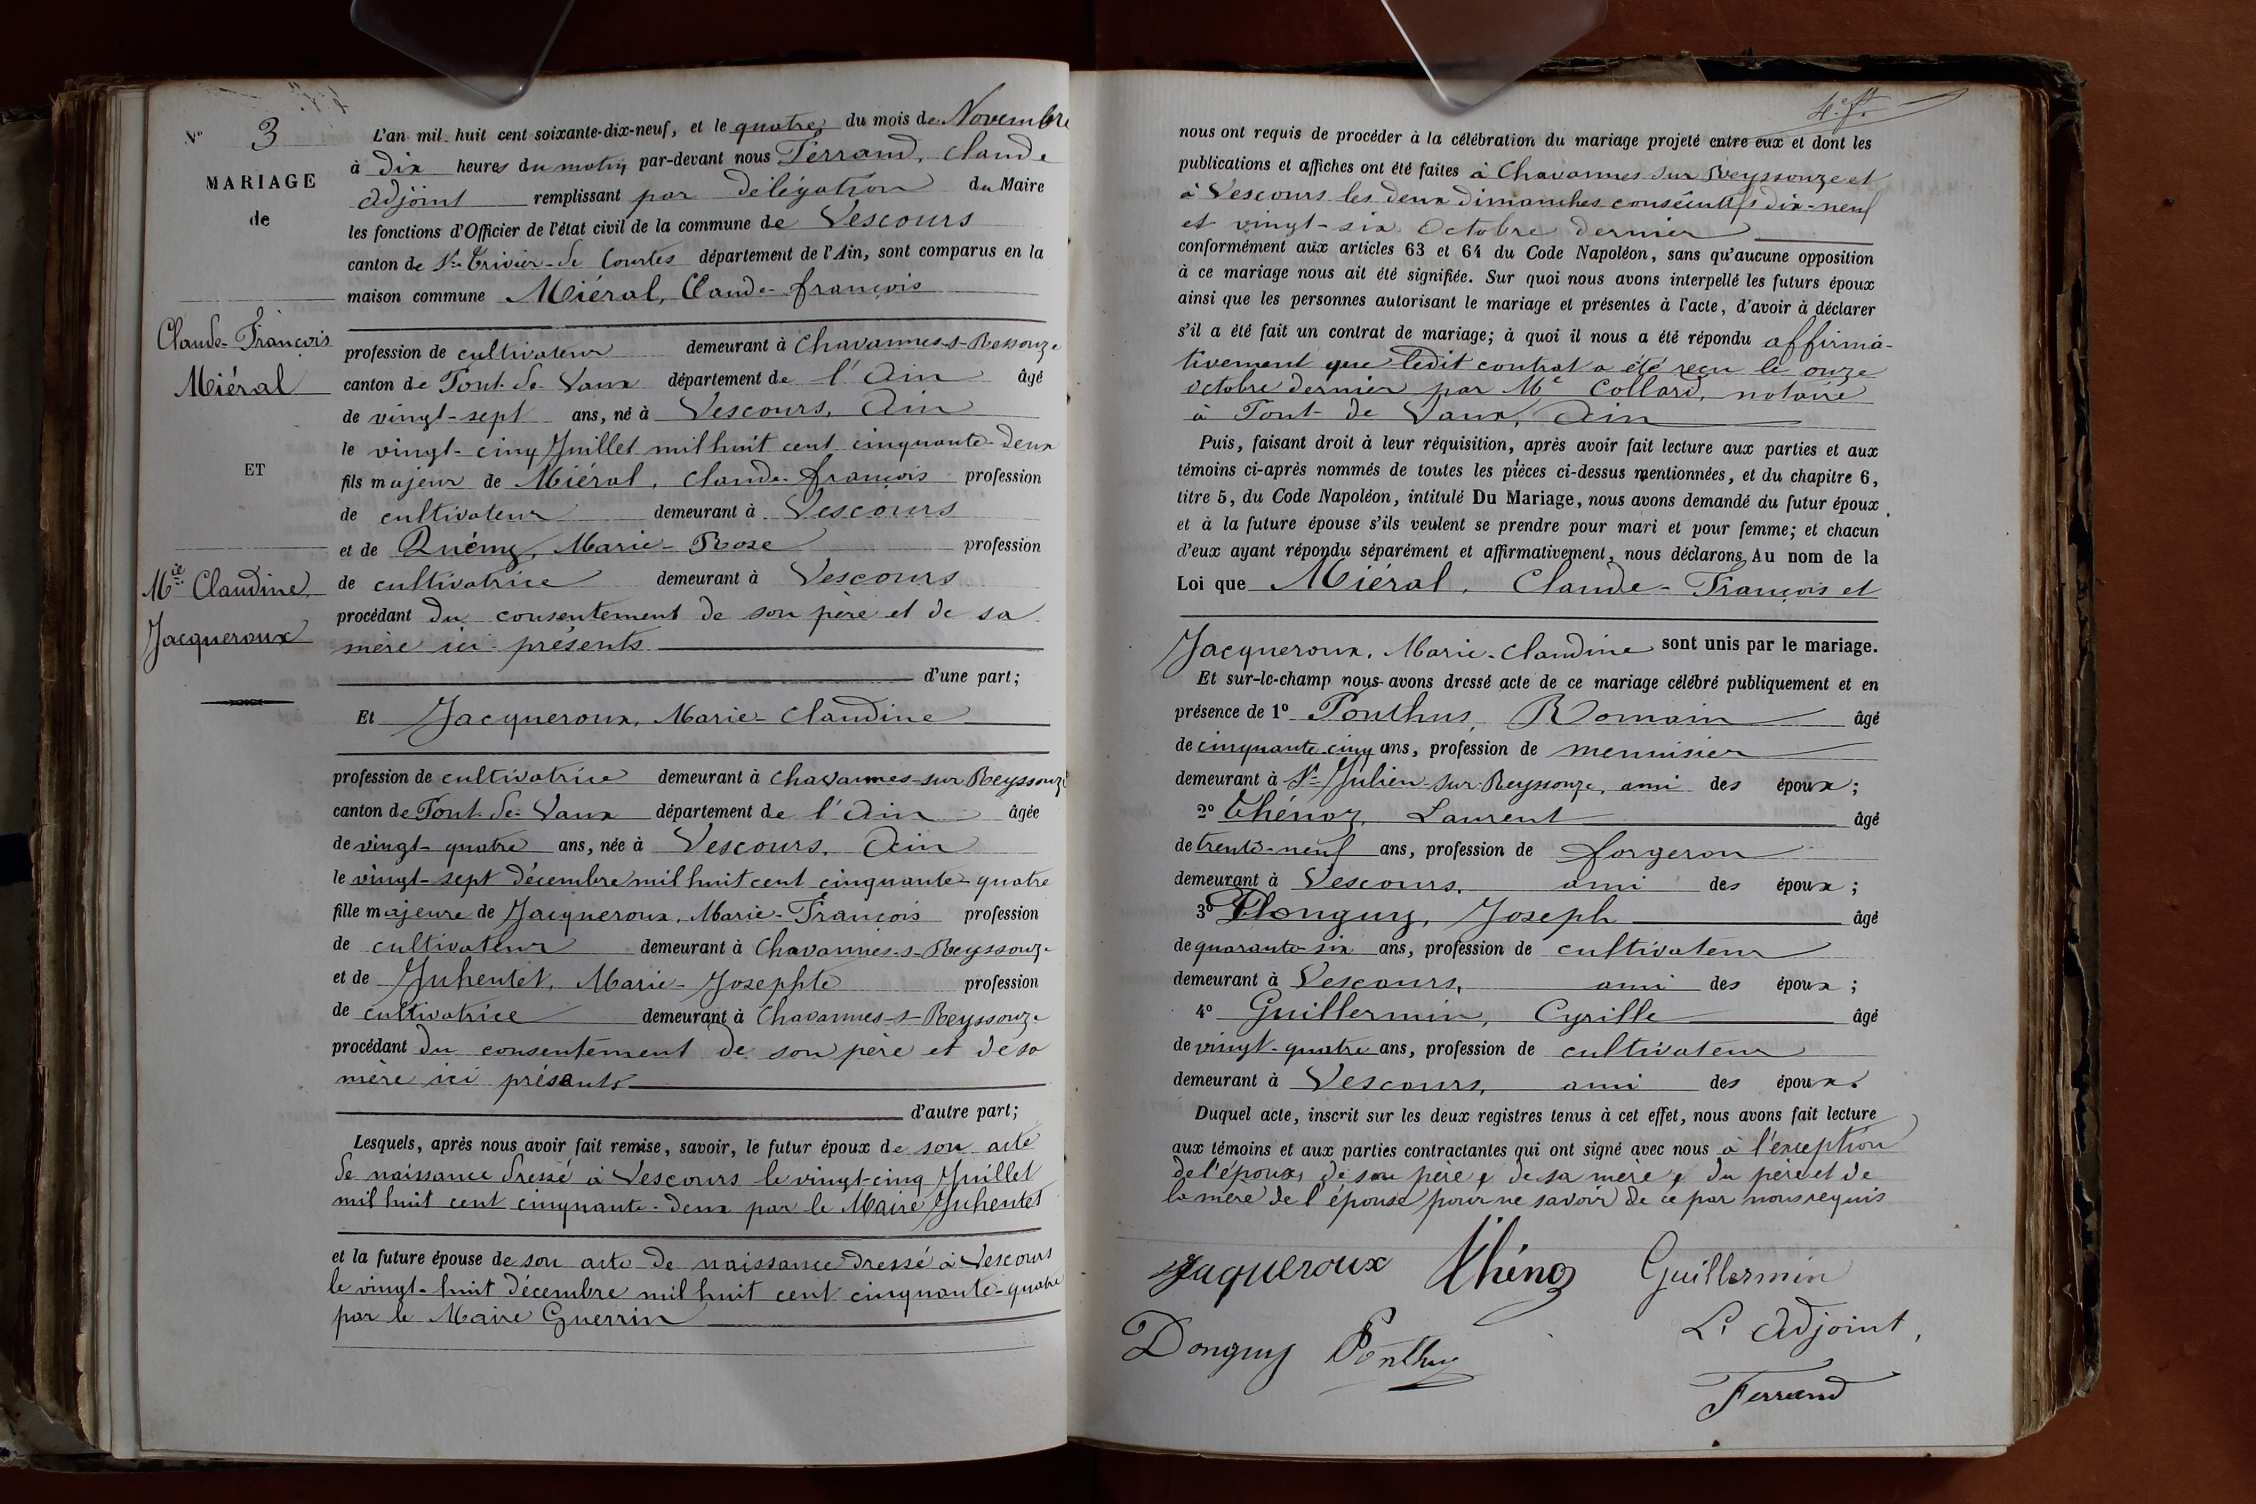 N° 3
MARIAGE
de
Claude-François
Miéral
ET
Mie Claudine
Jacqueroux
L'an mil huit cent soixante-dix-neuf, et le quatre du mois de Novembre
à dix heures du matin par-devant nous Ferrand, Claude
adjoint remplissant par délégation du Maire
les fonctions d'Officier de l'état civil de la commune de Vescours
canton de St-Trivier-de Courtes département de l'Ain, sont comparus en la
maison commune Miéral, Claude-françois
profession de cultivateur demeurant à Chavannes-s-Ressouze
canton de Pont-de-Vaux département de l'Ain âgé
de vingt-sept ans, né à Vescours, Ain
le vingt-cinq Juillet mil huit cent cinquante-deux
fils majeur de Miéral, Claude-françois profession
de cultivateur demeurant à Vescours
et de Quémy, Marie-Rose profession
de cultivatrice demeurant à Vescours
procédant du consentement de son père et de sa
mère ici présents
d'une part;
Et Jacqueroux, Marie-Claudine
profession de cultivatrice demeurant à Chavannes-sur Reyssouze
canton de Pont-de-Vaux département de l'Ain âgée
de vingt-quatre ans, née à Vescours, Ain
le vingt-sept décembre mil huit cent cinquante-quatre
fille majeure de Jacqueroux, Marie-François profession
de cultivateur demeurant à Chavannes-s-Reyssouze
et de Juhentet, Marie-Josephte profession
de cultivatrice demeurant à Chavannes-s-Reyssouze
procédant du consentement de son père et de sa
mère ici présents
d'autre part;
Lesquels, après nous avoir fait remise, savoir, le futur époux de son acte
de naissance dressé à Vescours le vingt-cinq Juillet
mil huit cent cinquante-deux par le Maire Juhentet
et la future épouse de son acte de naissance dressé à Vescours
le vingt-huit décembre mil huit cent cinquante-quatre
par le Maire Guerrin
4e ft
nous ont requis de procéder à la célébration du mariage projeté entre eux et dont les
publications et affiches ont été faites à Chavannes sur Reyssouze et
à Vescours les deux dimanches consécutifs dix-neuf
et vingt-six Octobre dernier
conformément aux articles 63 et 64 du Code Napoléon, sans qu'aucune opposition
à ce mariage nous ait été signifiée. Sur quoi nous avons interpellé les futurs époux
ainsi que les personnes autorisant le mariage et présentes à l'acte, d'avoir à déclarer
s'il a été fait un contrat de mariage; à quoi il nous a été répondu affirma-
tivement que ledit contrat a été reçu le onze
octobre dernier par Me Collard, notaire
à Pont-de Vaux, Ain
Puis, faisant droit à leur réquisition, après avoir fait lecture aux parties et aux
témoins ci-après nommés de toutes les pièces ci-dessus mentionnées, et du chapitre 6,
titre 5, du Code Napoléon, intitulé Du Mariage, nous avons demandé du futur époux
et à la future épouse s'ils veulent se prendre pour mari et pour femme; et chacun
d'eux ayant répondu séparément et affirmativement, nous déclarons Au nom de la
Loi que Miéral, Claude-François et
Jacqueroux, Marie-Claudine sont unis par le mariage.
Et sur-le-champ nous avons dressé acte de ce mariage célébré publiquement et en
présence de 1° Ponthus, Romain âgé
de cinquante-cinq ans, profession de menuisier
demeurant à St-Julien-sur-Reyssouze, ami des époux;
2° Thénoz, Laurent âgé
de trente-neuf ans, profession de forgeron
demeurant à Vescours, ami des époux;
3° Donguy, Joseph âgé
de quarante-six ans, profession de cultivateur
demeurant à Vescours, ami des époux;
4° Guillermin, Cyrille âgé
de vingt-quatre ans, profession de cultivateur
demeurant à Vescours, ami des époux.
Duquel acte, inscrit sur les deux registres tenus à cet effet, nous avons fait lecture
aux témoins et aux parties contractantes qui ont signé avec nous à l'exception
de l'époux, de son père, de sa mère, du père et de
la mère de l'épouse pour ne savoir de ce par nous requis
Jaqueroux Thénoz Guillermin
Donguy Ponthus
L'Adjoint,
Ferrand